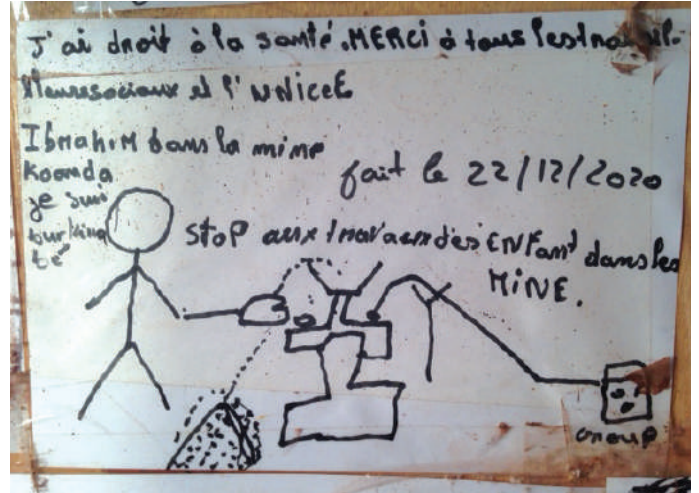 J'ai droit à la santé. MERCi à tous les travail-
lleuresociaux et l'UNiceE
IbrahiM dans la mine
Koanda
je suis
burkina
bè
fait le 22/12/2020
StoP aux travaux des ENFant dans les
MiNE.
Group